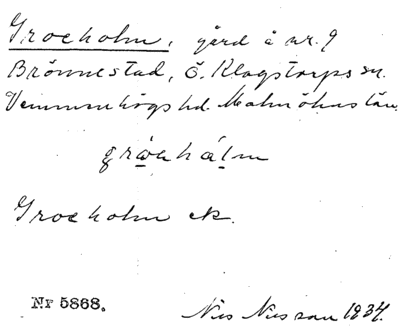 Groeholm, gård å nr. 9
Brönnestad, Ö. Klagstorps sn.
Vemmenhögs hd. Malmöhus län.
Groeholm ek.
Nr 5868.
Nils Nilsson 1934.